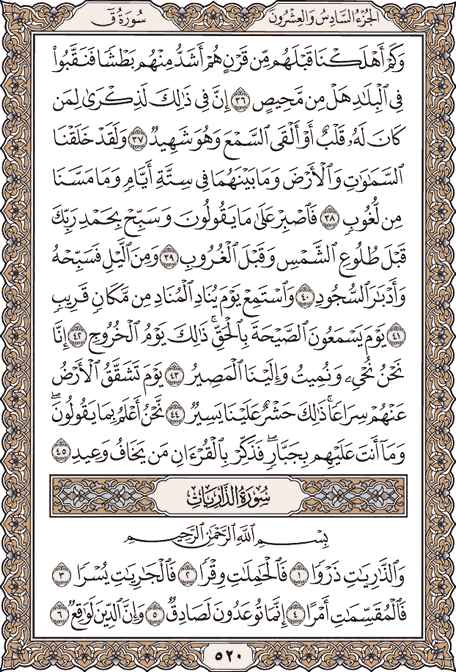 الجزء السادس والعشرون
سورة ق
وَكَمْ أَهْلَكْنَا قَبْلَهُم مِّن قَرْنٍ هُمْ أَشَدُّ مِنْهُم بَطْشًا فَنَقَّبُوا۟
فِى ٱلْبِلَٰدِ هَلْ مِن مَّحِيصٍ ٣٦ إِنَّ فِى ذَٰلِكَ لَذِكْرَىٰ لِمَن
كَانَ لَهُۥ قَلْبٌ أَوْ أَلْقَى ٱلسَّمْعَ وَهُوَ شَهِيدٌ ٣٧ وَلَقَدْ خَلَقْنَا
ٱلسَّمَٰوَٰتِ وَٱلْأَرْضَ وَمَا بَيْنَهُمَا فِى سِتَّةِ أَيَّامٍ وَمَا مَسَّنَا
مِن لُّغُوبٍ ٣٨ فَٱصْبِرْ عَلَىٰ مَا يَقُولُونَ وَسَبِّحْ بِحَمْدِ رَبِّكَ
قَبْلَ طُلُوعِ ٱلشَّمْسِ وَقَبْلَ ٱلْغُرُوبِ ٣٩ وَمِنَ ٱلَّيْلِ فَسَبِّحْهُ
وَأَدْبَٰرَ ٱلسُّجُودِ ٤٠ وَٱسْتَمِعْ يَوْمَ يُنَادِ ٱلْمُنَادِ مِن مَّكَانٍ قَرِيبٍ
٤١ يَوْمَ يَسْمَعُونَ ٱلصَّيْحَةَ بِٱلْحَقِّ ۚ ذَٰلِكَ يَوْمُ ٱلْخُرُوجِ ٤٢ إِنَّا
نَحْنُ نُحْىِۦ وَنُمِيتُ وَإِلَيْنَا ٱلْمَصِيرُ ٤٣ يَوْمَ تَشَقَّقُ ٱلْأَرْضُ
عَنْهُمْ سِرَاعًا ۚ ذَٰلِكَ حَشْرٌ عَلَيْنَا يَسِيرٌ ٤٤ نَّحْنُ أَعْلَمُ بِمَا يَقُولُونَ ۖ
وَمَآ أَنتَ عَلَيْهِم بِجَبَّارٍ ۖ فَذَكِّرْ بِٱلْقُرْءَانِ مَن يَخَافُ وَعِيدِ ٤٥
سورة الذاريات
بِسْمِ ٱللَّهِ ٱلرَّحْمَٰنِ ٱلرَّحِيمِ
وَٱلذَّٰرِيَٰتِ ذَرْوًا ١ فَٱلْحَٰمِلَٰتِ وِقْرًا ٢ فَٱلْجَٰرِيَٰتِ يُسْرًا ٣
فَٱلْمُقَسِّمَٰتِ أَمْرًا ٤ إِنَّمَا تُوعَدُونَ لَصَادِقٌ ٥ وَإِنَّ ٱلدِّينَ لَوَٰقِعٌ ٦
٥٢٠